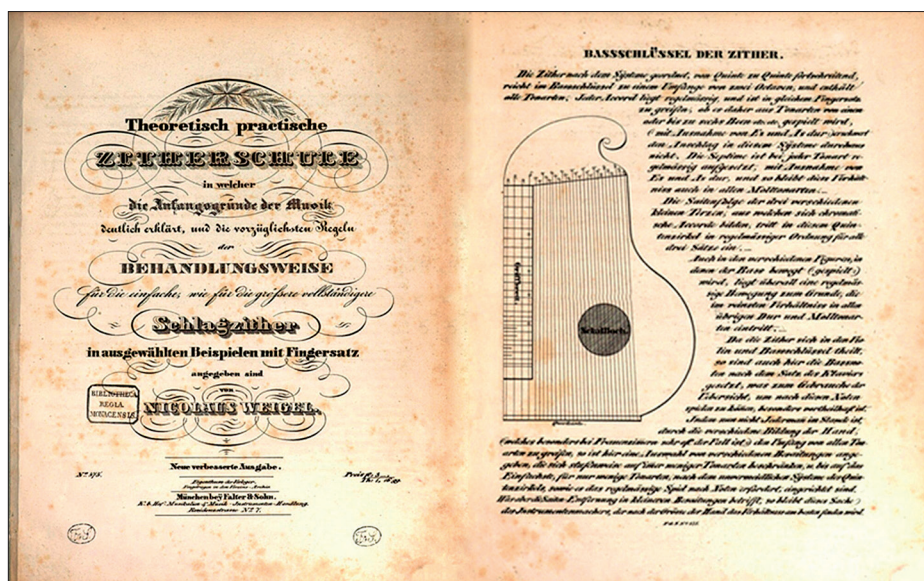 Theoretisch practische
ZITHERSCHULE
in welcher
die Anfangsgründe der Musik
deutlich erklärt, und die vorzüglichsten Regeln
der
BEHANDLUNGSWEISE
für die einfache, wie für die grössere vollständigere
Schlagzither
in ausgewählten Beispielen mit Fingersatz
angegeben sind
VON
NICOLAUS WEIGEL.
BIBLIOTHECA
REGIA
MONACENSIS
Neue verbesserte Ausgabe.
No. 175.
Eigenthum der Verleger.
Eingetragen in das Vereins-Archiv
München bey Falter & Sohn.
Residenzstrasse No. 7.
BASSSCHLÜSSEL DER ZITHER.
Die Zither nach dem Systeme geordnet, von Quinte zu Quinte fortschreitend,
reicht im Bassschlüssel zu einem Umfange von zwei Octaven, und enthält
alle Tonarten; Jeder Accord liegt regelmässig, und ist in gleichem Fingersatz
zu greifen, ob es daher aus Tonarten von einem
oder bis zu sechs Been etc. etc. gespielt wird,
(mit Ausnahme von Es und As dur)
den Anschlag in diesem Systeme durchaus
nicht. Die Septime ist bei jeder Tonart re-
gelmässig aufgesetzt, mit Ausnahme von
Es und As dur, und so bleibt diess Verhält-
niss auch in allen Molltonarten.
Die Saitenfolge der drei verschiedenen
kleinen Terzen, aus welchen sich chromati-
sche Accorde bilden, tritt in diesem Quin-
tenzirkel in regelmässiger Ordnung für alle
drei Sätze ein.
Auch in den verschiedenen Figuren, in
denen der Bass bewegt (gespielt)
wird, liegt überall eine regelmäs-
sige Bewegung zum Grunde, die
im reinsten Verhältniss in allen
übrigen Dur und Molltonar-
ten eintritt.
Da die Zither sich in den Vio-
lin und Bassschlüssel theilt,
so sind auch hier die Bassno-
ten nach dem Satz des Klaviers
gesetzt, was zum Gebrauche der
Uebersicht, um nach diesen Noten
spielen zu können, besonders vortheilhaft ist.
Indem nun nicht Jedermann im Stande ist,
durch die verschiedene Bildung der Hand,
(welches besonders bei Frauenzimmern sehr oft der Fall ist) den Umfang von allen Ton-
arten zu greifen, so ist hier eine Auswahl von verschiedenen Besaitungen ange-
geben, die sich stufenweise auf immer weniger Tonarten beschränken, u. bis auf das
Einfachste, für nur wenige Tonarten, nach dem unvermeidlichen Systeme der Quin-
tenzirkels, sowie es das regelmässige Spiel nach Noten erfordert, eingerichtet sind.
Was aber die Saiten Entfernung in kleineren Besaitungen betrifft, so bleibt diess Sache
des Instrumentenmachers, der nach der Grösse der Hand das Verhältniss am besten finden wird.
Griffbrett
Schallloch.